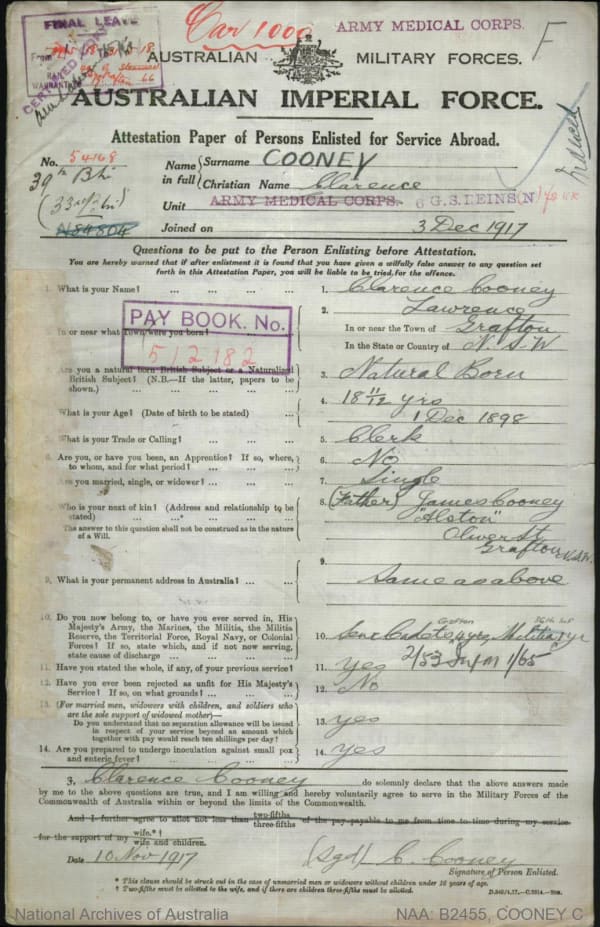 FINAL LEAVE
Car 1000
ARMY MEDICAL CORPS.
F
AUSTRALIAN MILITARY FORCES.
AUSTRALIAN IMPERIAL FORCE.
Attestation Paper of Persons Enlisted for Service Abroad.
No. 54168
39th Bn
(33rd Bn)
N84804
Name in full { Surname COONEY
Christian Name Clarence
Unit ARMY MEDICAL CORPS. 6 G.S. REINS (N)
Joined on 3 Dec 1917
Questions to be put to the Person Enlisting before Attestation.
You are hereby warned that if after enlistment it is found that you have given a wilfully false answer to any question set
forth in this Attestation Paper, you will be liable to be tried for the offence.
1. What is your Name? ... ... ... 1. Clarence Cooney
PAY BOOK. No.
512182
2. Lawrence
In or near what Town were you born? In or near the Town of Grafton
In the State or Country of N.S.W
Are you a natural born British Subject or a Naturalized
British Subject? (N.B.—If the latter, papers to be
shown.) ... ... 3. Natural Born
What is your Age? (Date of birth to be stated) ... 4. 18 11/12 yrs
1 Dec 1898
5. What is your Trade or Calling? ... ... ... 5. Clerk
6. Are you, or have you been, an Apprentice? If so, where,
to whom, and for what period? ... ... ... 6. No
Are you married, single, or widower? ... ... 7. Single
Who is your next of kin? (Address and relationship to be
stated) ... ... ... 8. (Father) James Cooney
"Alston"
The answer to this question shall not be construed as in the nature
of a Will.
Oliver St
Grafton N.S.W.
9. What is your permanent address in Australia? ... ... 9. Same as above
10. Do you now belong to, or have you ever served in, His
Majesty's Army, the Marines, the Militia, the Militia
Reserve, the Territorial Force, Royal Navy, or Colonial
Forces? If so, state which, and if not now serving,
state cause of discharge ... ... 10. Senr Cadets 4 yrs, Militia 1 yr
11. Have you stated the whole, if any, of your previous service? 11. Yes
12. Have you ever been rejected as unfit for His Majesty's
Service? If so, on what grounds? ... ... 12. No
13. (For married men, widowers with children, and soldiers who
are the sole support of widowed mother)—
Do you understand that no separation allowance will be issued
in respect of your service beyond an amount which
together with pay would reach ten shillings per day? 13. yes
14. Are you prepared to undergo inoculation against small pox
and enteric fever? ... ... ... 14. yes
I, Clarence Cooney do solemnly declare that the above answers made
by me to the above questions are true, and I am willing and hereby voluntarily agree to serve in the Military Forces of the
Commonwealth of Australia within or beyond the limits of the Commonwealth.
And I further agree to allot not less than two-fifths three-fifths of the pay payable to me from time to time during my service
for the support of my wife.*† wife and children.
Date 10 Nov 1917 (Sgd) C. Cooney
Signature of Person Enlisted.
* This clause should be struck out in the case of unmarried men or widowers without children under 16 years of age.
† Two-fifths must be allotted to the wife, and if there are children three-fifths must be allotted.
National Archives of Australia NAA: B2455, COONEY C